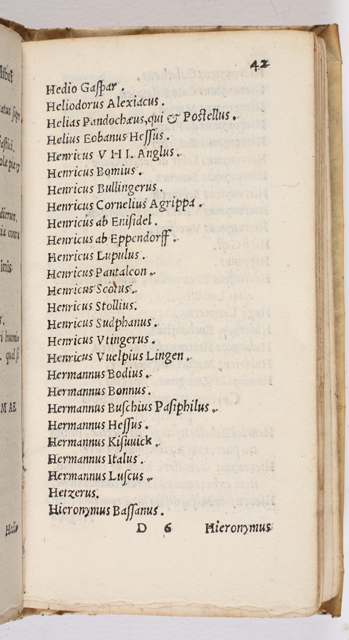 42
Hedio Gaspar.
Heliodorus Alexiacus.
Helias Pandochæus, qui & Postellus.
Helius Eobanus Hessus.
Henricus VHI. Anglus.
Henricus Bomius.
Henricus Bullingerus.
Henricus Cornelius Agrippa.
Henricus ab Enisidel.
Henricus ab Eppendorff.
Henricus Lupulus.
Henricus Pantalcon.
Henricus Scotus.
Henricus Stollius.
Henricus Sudphanus.
Henricus Vtingerus.
Henricus Vuelpius Lingen.
Hermannus Bodius.
Hermannus Bonnus.
Hermannus Buschius Pasiphilus.
Hermannus Hessus.
Hermannus Kisiuuick.
Hermannus Italus.
Hermannus Luscus.
Hetzerus.
Hieronymus Bassanus.
D 6 Hieronymus